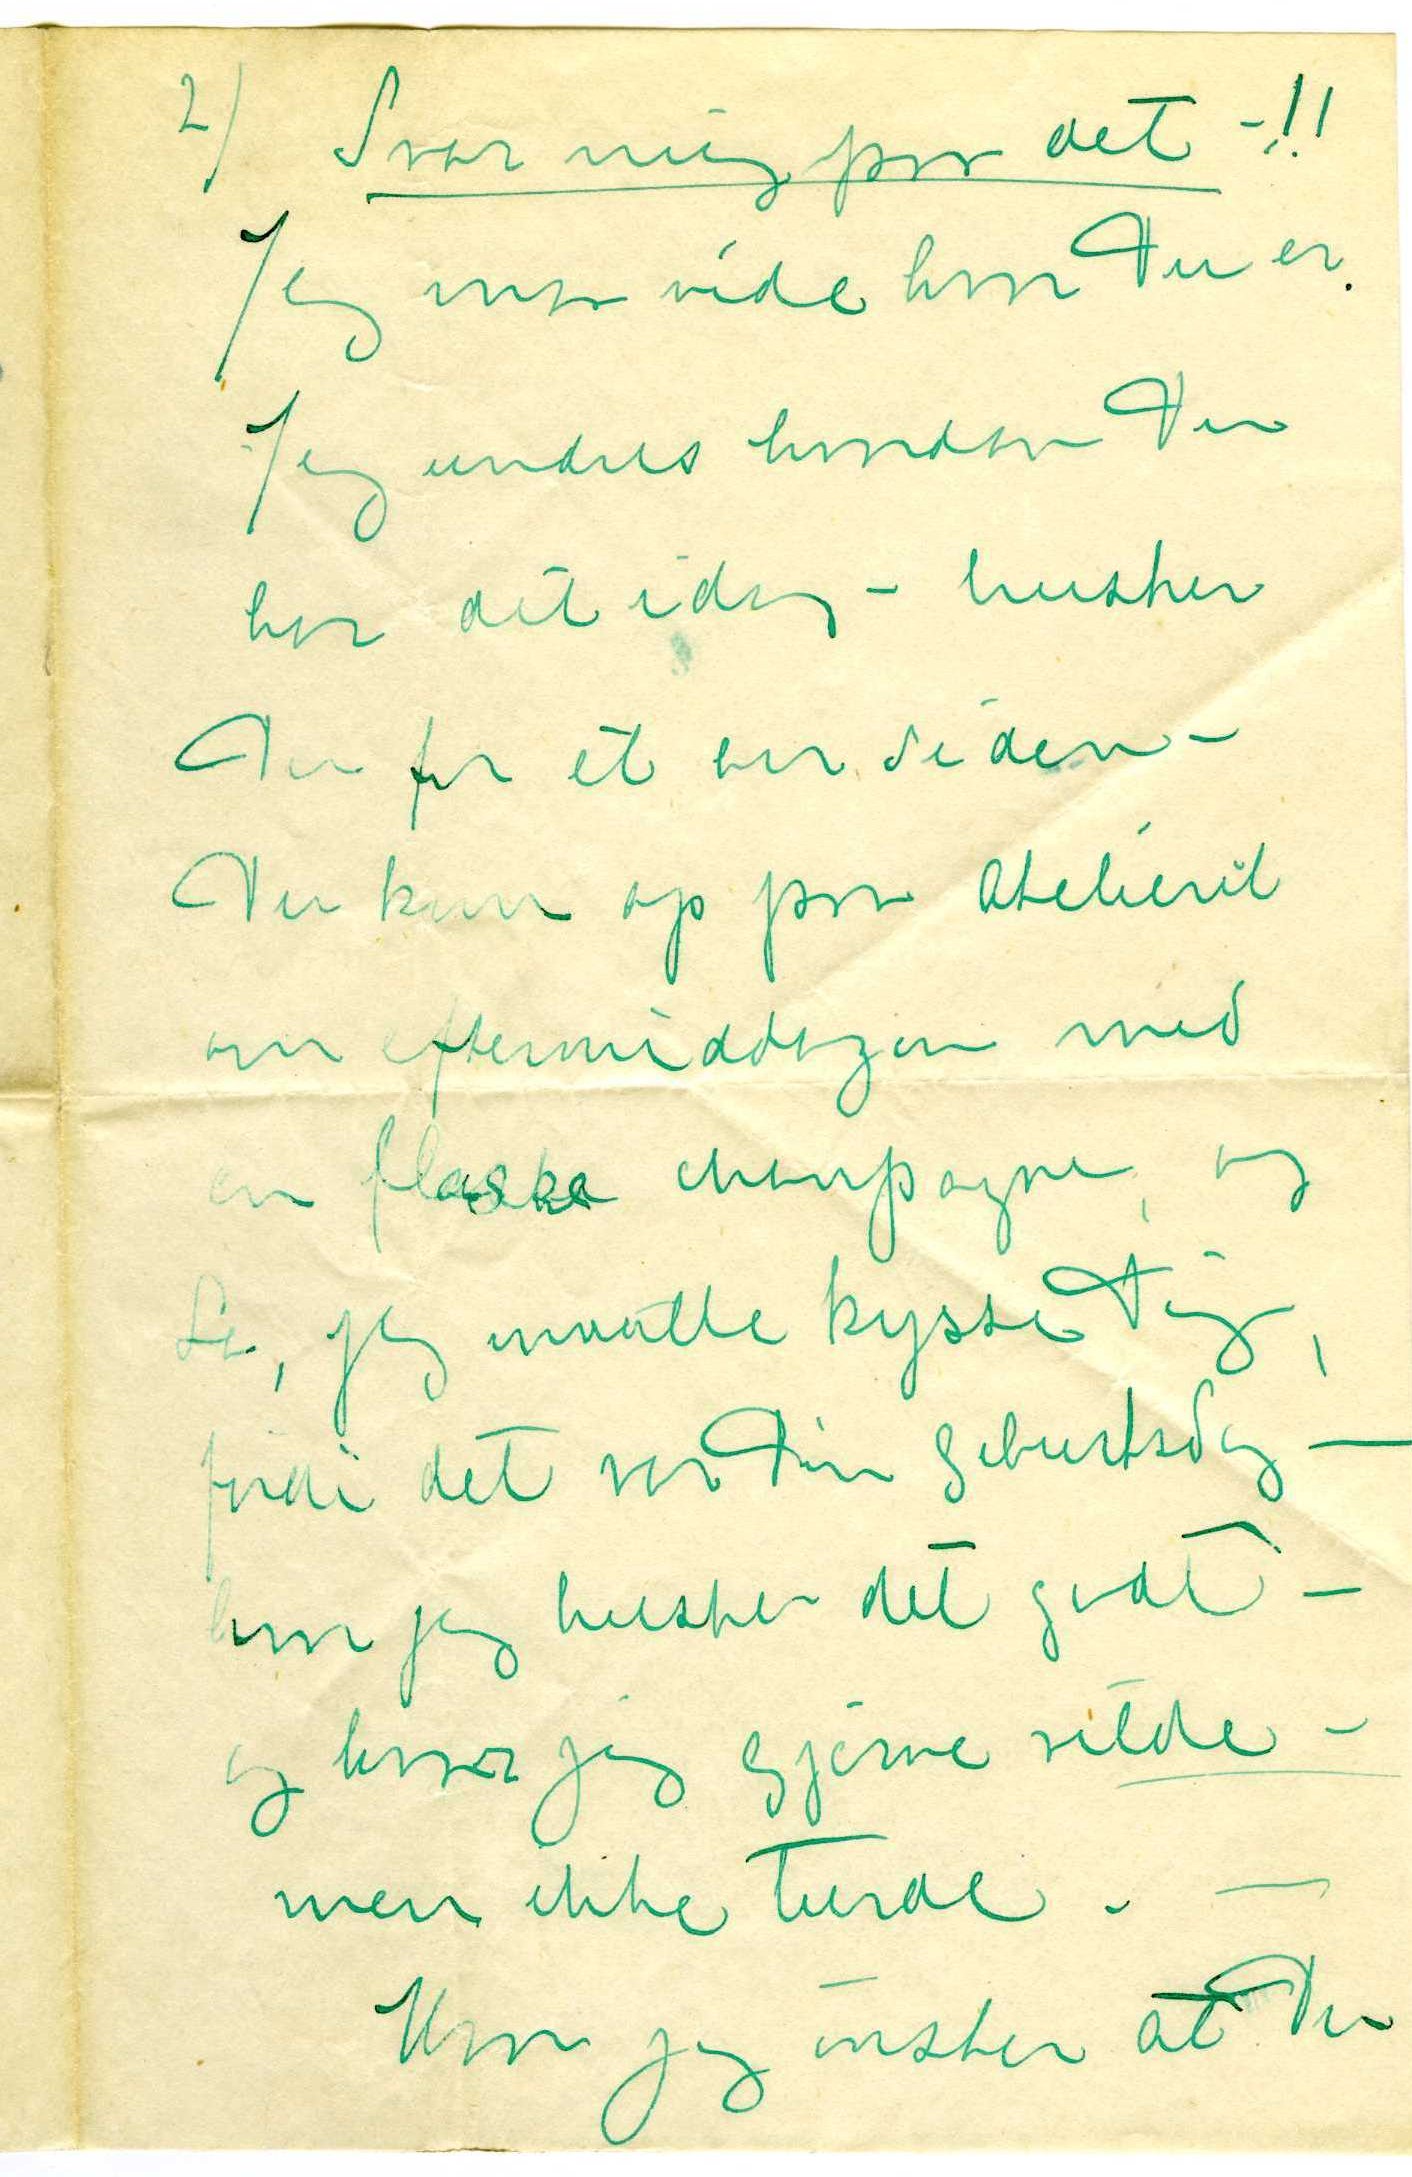 2) Svar mig paa det -!!
Jeg maa vide hvor Du er.
Jeg undres hvordan Du
har det idag - husker
Du for et aar siden -
Du kom op paa Atelieret
om eftermiddagen med
en flaske champagne, og
sa, jeg maatte kysse Dig,
fordi det var Din Geburtsdag —
hvor jeg husker det godt -
og hvor jeg gjerne vilde -
men ikke turde. —
Hvor jeg ønsker at Du